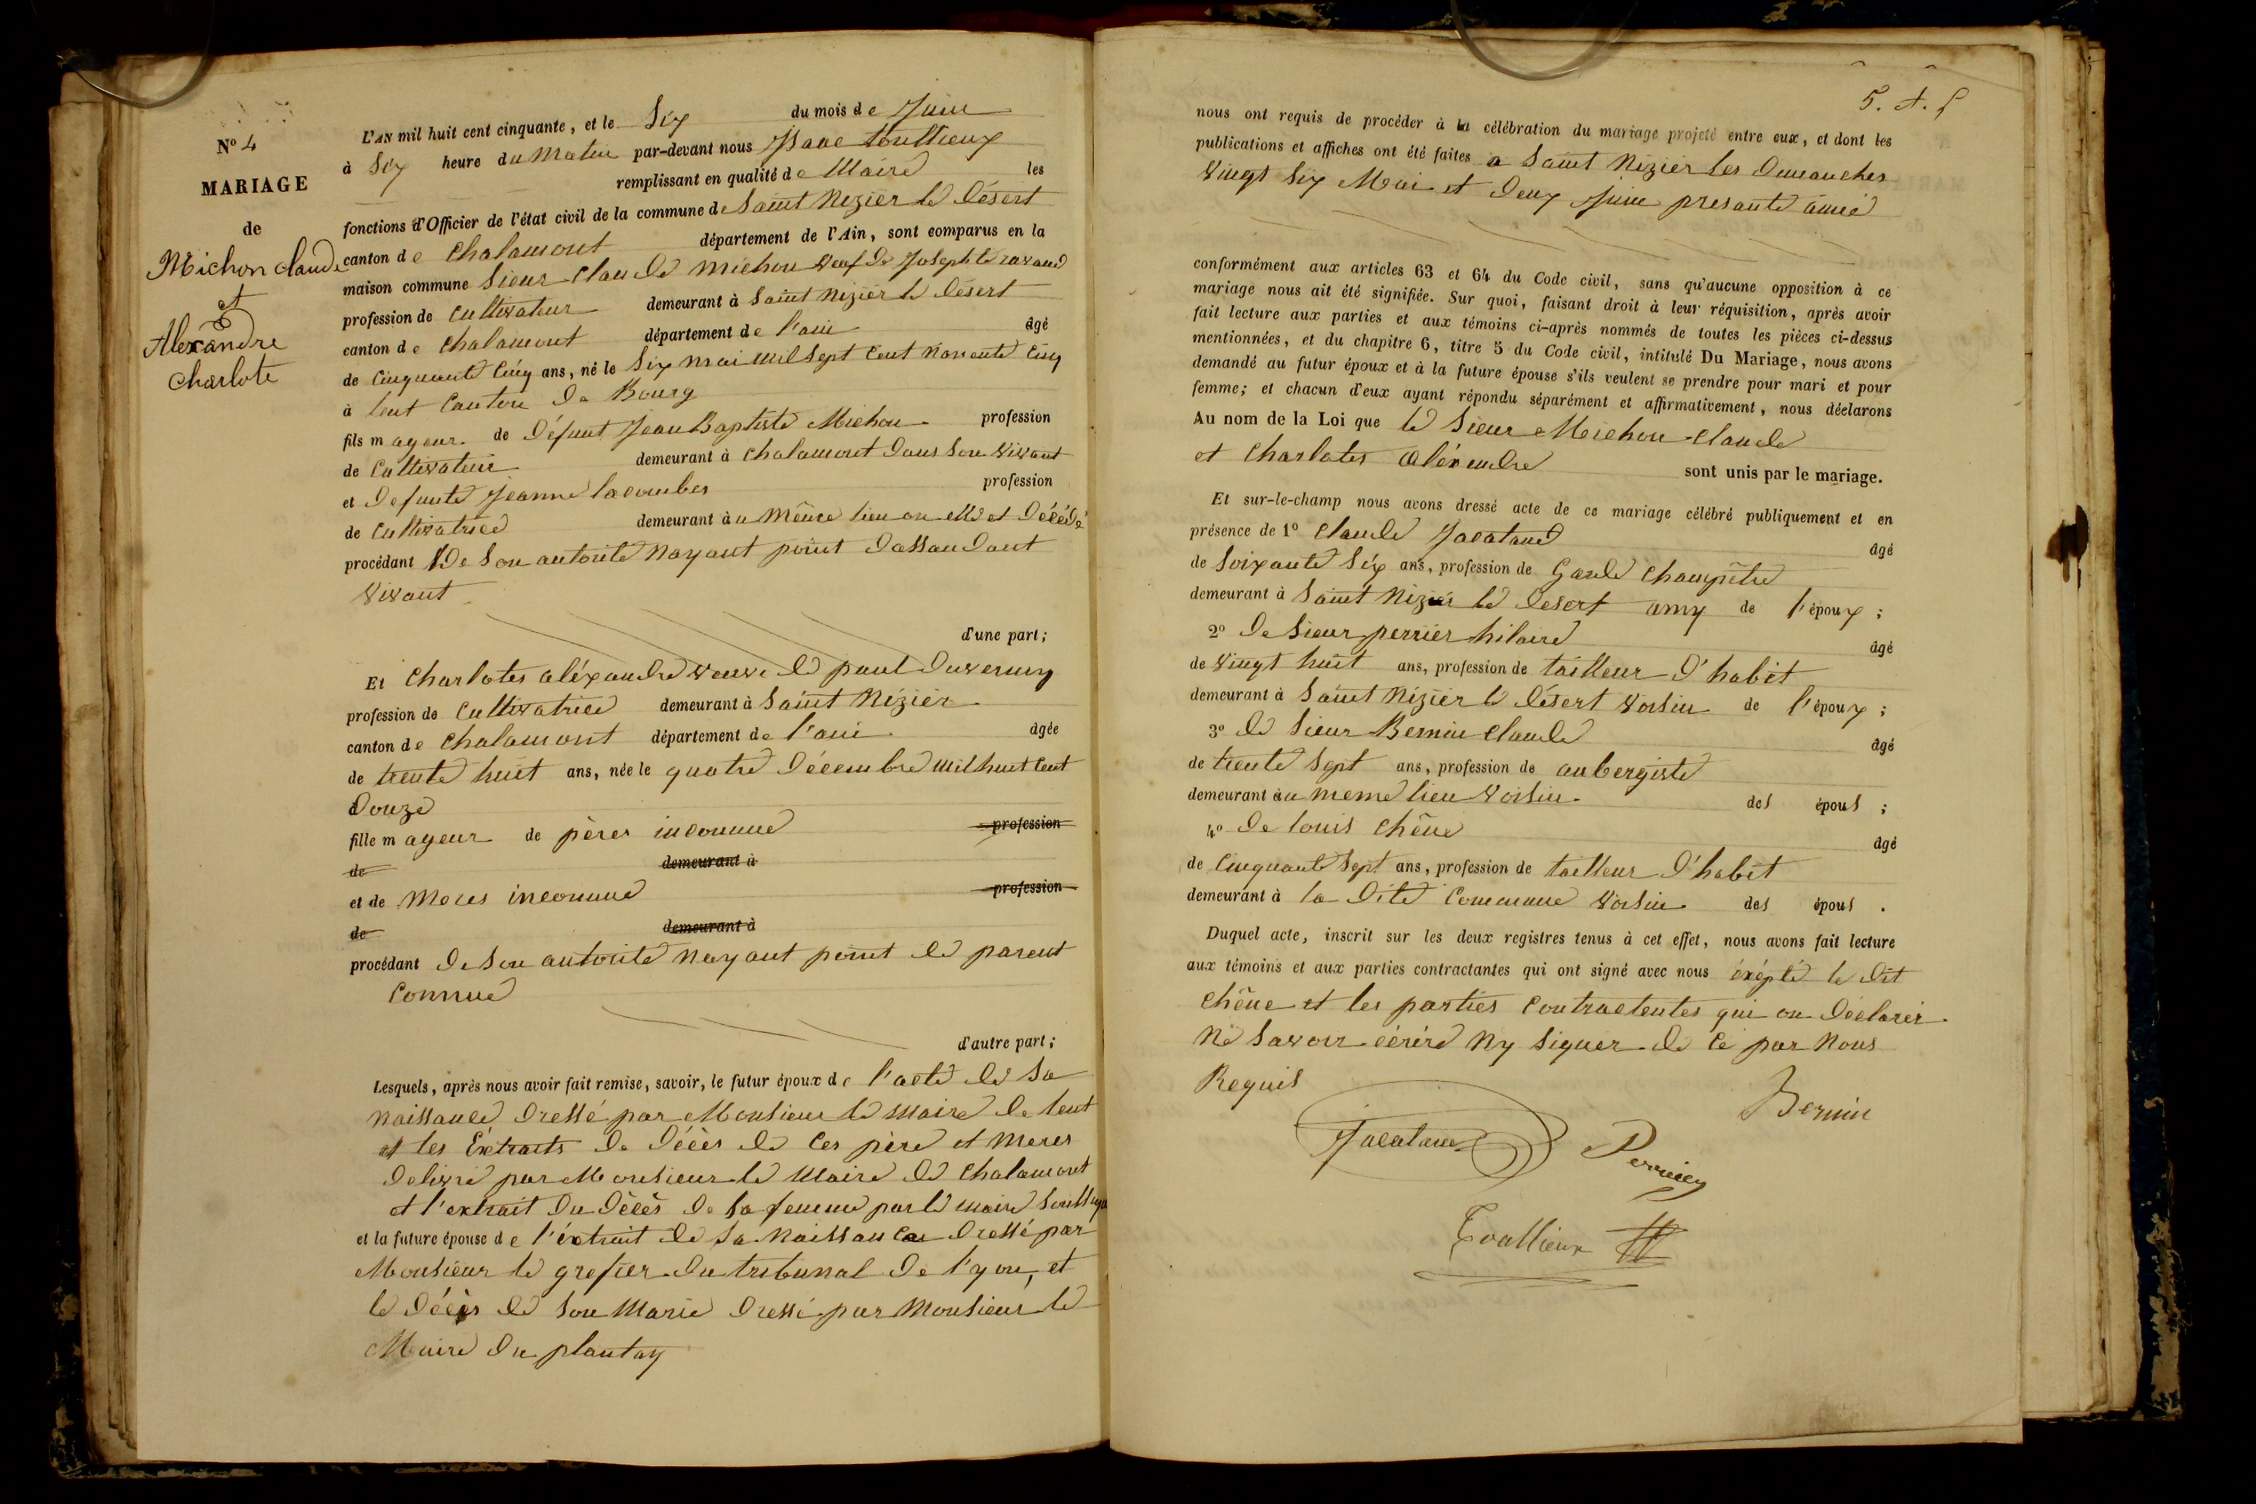 N° 4
MARIAGE
de
Michon claude
et
Alexandre
charlote
L'AN mil huit cent cinquante, et le Six du mois de Juin
à Six heure du Matin par-devant nous Isaac touttieux
remplissant en qualité de Maire les
fonctions d'Officier de l'état civil de la commune de Saint Nizier le Désert
canton de Chalamont département de l'Ain, sont comparus en la
maison commune Sieur Claude Michon veuf de Josephte ravaud
profession de Cultivateur demeurant à Saint Nizier le Désert
canton de Chalamont département de l'ain âgé
de Cinquante Cinq ans, né le Six mai mil Sept Cent Nonente Cinq
à lent Canton de Bourg
fils mageur de Défunt Jean Baptiste Michon profession
de Cultivateur demeurant à Chalamont dans Son vivant
et Defunte Jeanne lacombes profession
de Cultivatrice demeurant àu Même lieu ou elle et Décédé
procédant De Son autorité Nayant point Dassandant
Vivant
d'une part;
Et Charlotes aléxandre veuve de paul Duverney
profession de Cultivatrice demeurant à Saint Nizier
canton de Chalamont département de l'ain âgée
de trente huit ans, née le quatre Décembre Mil huit Cent
à Douze
fille mageur de pères inconnue profession
de demeurant à
et de Meres inconnue profession
de demeurant à
procédant de Son autorité Nayant point de parent
Connue
d'autre part;
Lesquels, après nous avoir fait remise, savoir, le futur époux de l'acte de Sa
Naissance Dressé par Monsieur le Maire de lent
et les Extraits de Décès de Ces père et Meres
Delivré par Monsieur le Maire de Chalamont
et l'extrait Du Décès De Sa femme par le maire Soussigné
et la future épouse de l'éxtrait de Sa Naissance Dressé par
Monsieur le grefier Du tribunal De l'yon, et
le Décès de Son Marie Dressé par Monsieur le
Maire Du plantay
5. A. f
nous ont requis de procéder à la célébration du mariage projeté entre eux, et dont les
publications et affiches ont été faites a Saint Nizier les Dimanches
Vingt Six Mai et Deux Juin presante année
conformément aux articles 63 et 64 du Code civil, sans qu'aucune opposition à ce
mariage nous ait été signifiée. Sur quoi, faisant droit à leur réquisition, après avoir
fait lecture aux parties et aux témoins ci-après nommés de toutes les pièces ci-dessus
mentionnées, et du chapitre 6, titre 5 du Code civil, intitulé Du Mariage, nous avons
demandé au futur époux et à la future épouse s'ils veulent se prendre pour mari et pour
femme; et chacun d'eux ayant répondu séparément et affirmativement, nous déclarons
Au nom de la Loi que le Sieur Michon Claude
et Charlotes aléxendre sont unis par le mariage.
Et sur-le-champ nous avons dressé acte de ce mariage célébré publiquement et en
présence de 1° Claude Jacataud âgé
de Soixante Six ans, profession de Garde Champêtre
demeurant à Saint Nizier le Désert amy de l'époux;
2° De Sieur perrier hilaire âgé
de Vingt huit ans, profession de tailleur D'habit
demeurant à Saint Nizier le Désert Voisin de l'époux;
3° de Sieur Bernin Claude âgé
de trente Sept ans, profession de aubergiste
demeurant àu meme lieu Voisin des épous;
4° De louis Chêne âgé
de Cinquante Sept ans, profession de tailleur D'habit
demeurant à la Dite Commune Voisin des épous.
Duquel acte, inscrit sur les deux registres tenus à cet effet, nous avons fait lecture
aux témoins et aux parties contractantes qui ont signé avec nous éxépté le Dit
Chêne et les parties Contractentes qui on Déclarer
Ne Savoir écrire Ny Signer de Ce par Nous
Requis
Bernin
Jacataud
Perrier
Touttieux